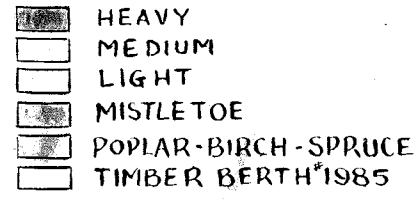 HEAVY
MEDIUM
LIGHT
MISTLETOE
POPLAR-BIRCH-SPRUCE
TIMBER BERTH #1985